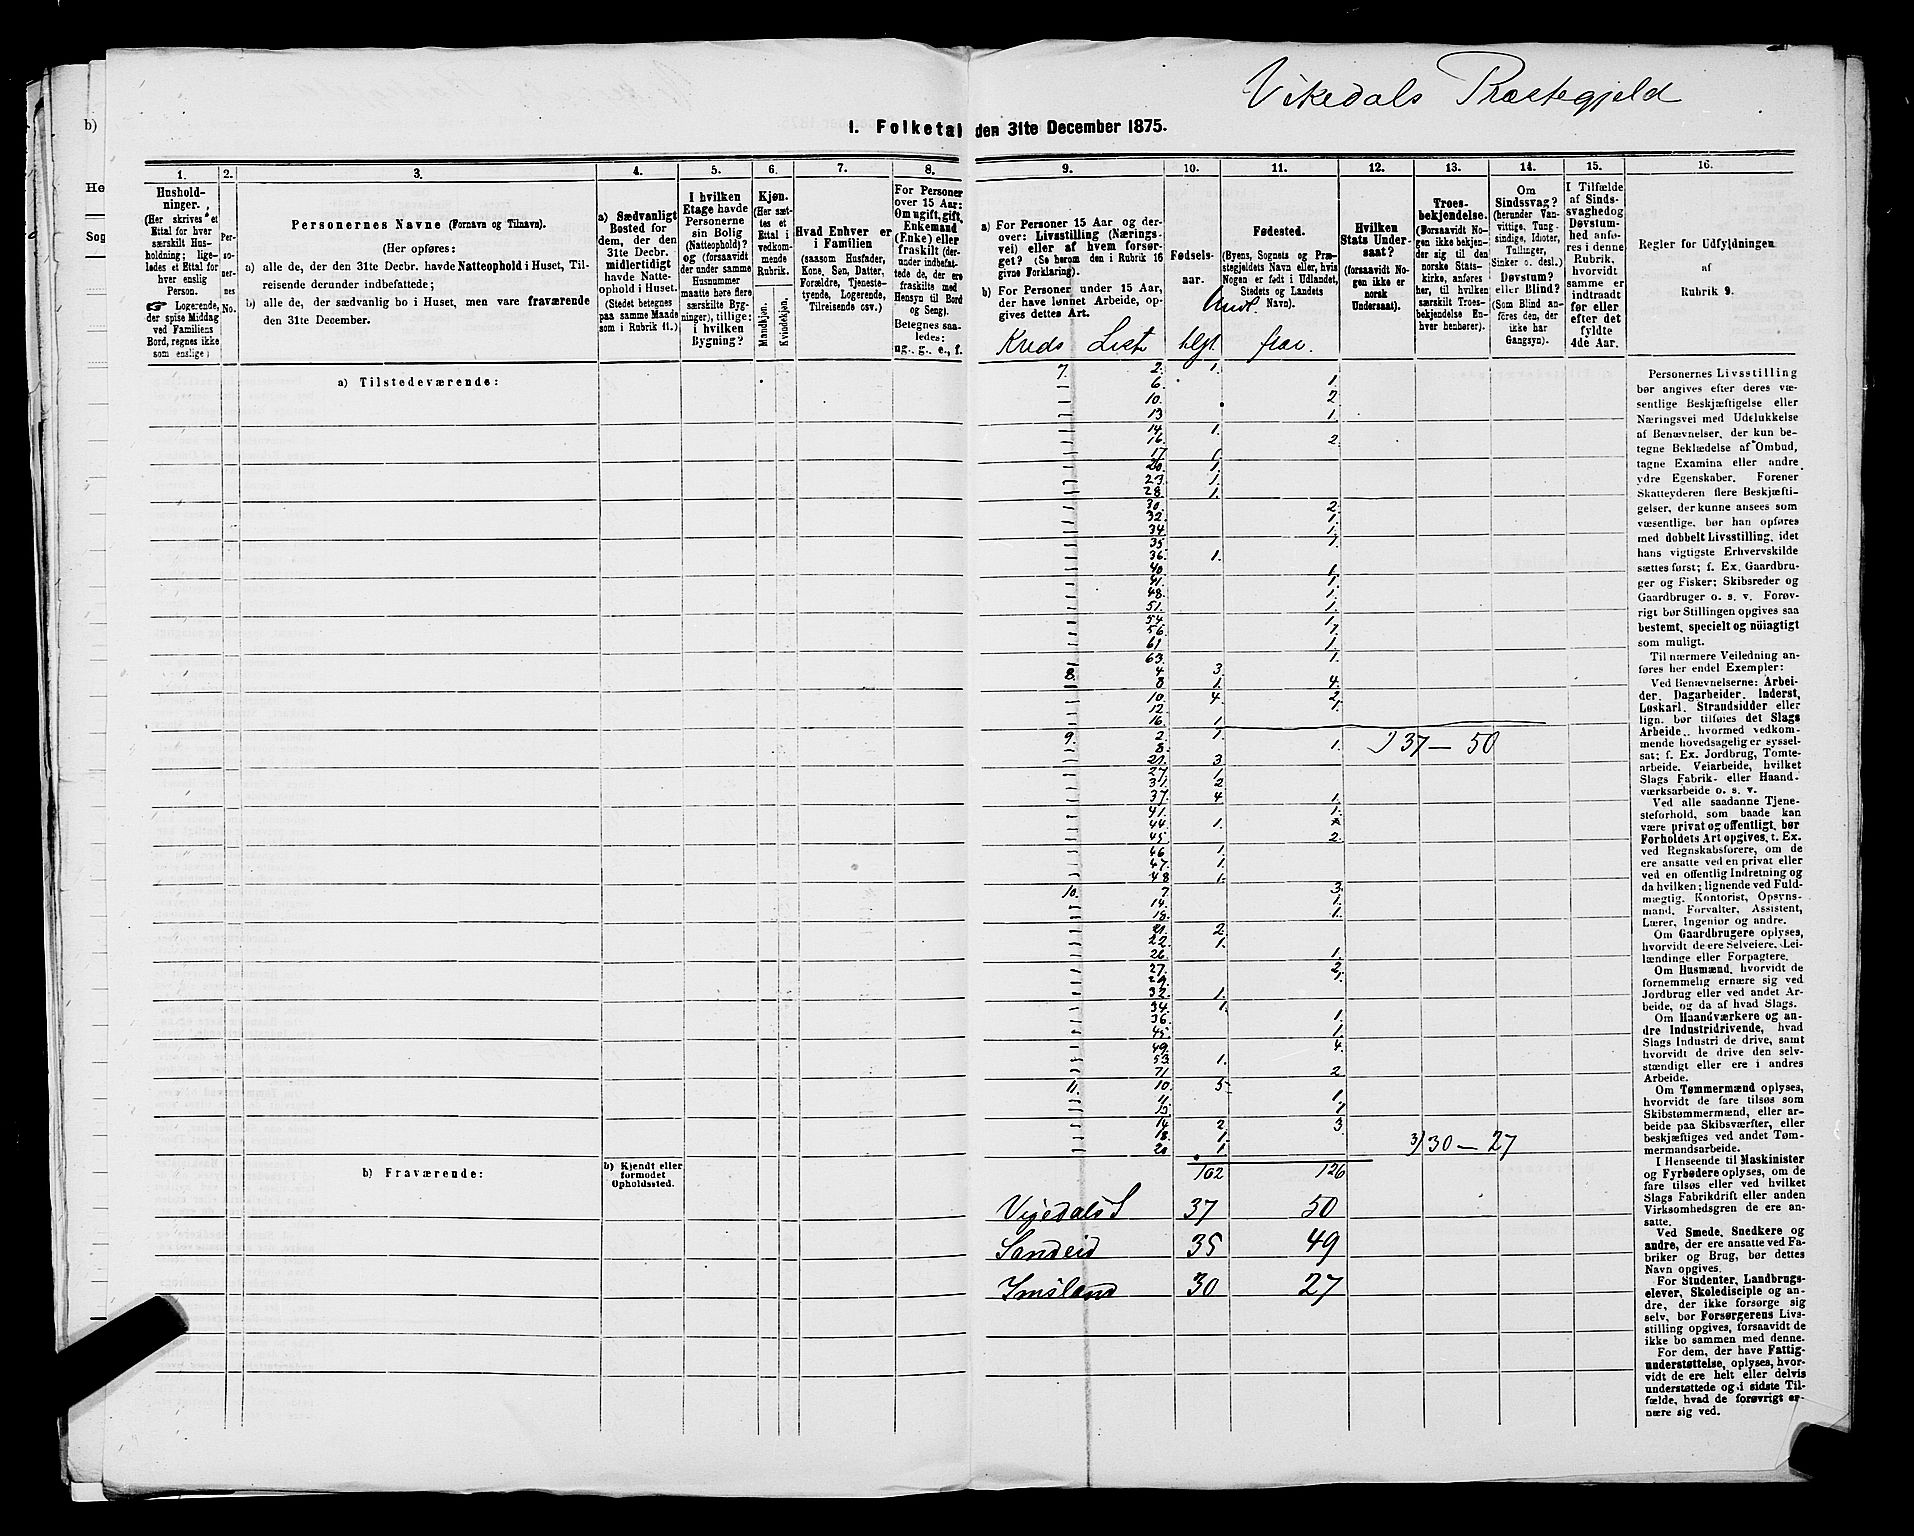 Vikedals Præstegjeld
b)
He
Sog
1. Folketal den 31te December 1875.
1.
Hushold-
ninger.
(Her skrives et
Ettal for hver
særskilt Hus-
holdning; lige-
ledes et Ettal for
hver enslig
Person.
☞ Logerende,
der spise Middag
ved Familiens
Bord, regnes ikke
som enslige)
2.
Per-
so-
ner-
nes
No.
3.
Personernes Navne (Fornavn og Tilnavn).
(Her opføres:
a) alle de, der den 31te Decbr. havde Natteophold i Huset, Til-
reisende derunder indbefattede;
b) alle de, der sædvanlig bo i Huset, men vare fraværende
den 31te December.
4.
a) Sædvanligt
Bosted for
dem, der den
31te Decbr.
midlertidigt
havde Natte-
ophold i Huset.
(Stedet betegnes
paa samme Maade
som i Rubrik 11.)
5.
I hvilken
Etage havde
Personerne
sin Bolig
(Natteophold)?
og (forsaavidt
der under samme
Husnummer
maatte høre flere
særskilte Byg-
ninger), tillige:
i hvilken
Bygning?
6.
Kjøn.
(Her sæt-
tes et
Ettal i
vedkom-
mende
Rubrik.
Mandkjøn.
Kvindekjøn.
7.
Hvad Enhver er
i Familien
(saasom Husfader,
Kone, Søn, Datter,
Forældre, Tjeneste-
tyende, Logerende,
Tilreisende osv.)
8.
For Personer
over 15 Aar:
Om ugift, gift,
Enkemand
(Enke) eller
fraskilt (der-
under indbefat-
tede de, der ere
fraskilte med
Hensyn til Bord
og Seng).
Betegnes saa-
ledes:
ug., g., e., f.
9.
a) For Personer 15 Aar og der-
over: Livsstilling (Nærings-
vei) eller af hvem forsør-
get? (Se herom den i Rubrik 16
givne Forklaring.)
b) For Personer under 15 Aar,
der have lønnet Arbeide, op-
gives dettes Art.
10.
Fødsels-
aar.
11.
Fødested.
(Byens, Sognets og Præ-
stegjeldets Navn eller, hvis
Nogen er født i Udlandet,
Stedets og Landets
Navn).
12.
Hvilken
Stats Under-
saat?
(forsaavidt No-
gen ikke er
norsk
Undersaat).
13.
Troes-
bekjendelse.
(Forsaavidt No-
gen ikke bekjen-
der sig til den
norske Stats-
kirke, anføres
her, til hvilken
særskilt Troes-
bekjendelse En-
hver henhører).
14.
Om
Sindssvag?
(herunder Van-
vittige, Tung-
sindige, Idioter,
Tullinger,
Sinker o. desl.).
Døvstum?
eller Blind?
(Som Blind an-
føres den, der
ikke har
Gangsyn).
15.
I Tilfælde
af Sinds-
svaghed og
Døvstum-
hed anfø-
res i denne
Rubrik,
hvorvidt
samme er
indtraadt
før eller
efter det
fyldte
4de Aar.
16.
Regler for Udfyldningen
af
Rubrik 9.
Kreds List tilgt. frav.
a) Tilstedeværende:
7. 2. 1.
6. 1.
10. 2
13 1.
14. 1.
16. 2.
17 1
20. 1.
23. 1.
28. 1.
30. 2.
32. 1.
34. 1.
35. 1.
36. 1.
40. 1.
41. 1.
48. 1.
51. 1.
54 1.
56. 1.
61 1.
63. 1.
8. 4 3.
8 1. 4.
10. 4 2.
12. 1.
16. 1.
9. 2. 1.
8. 1. 1) 37 — 50
21. 3
27. 1
31. 2
37. 4 1.
41. 1.
44. 1.
45. 2.
46 1.
47. 1.
48 1.
10. 7. 3.
14. 1.
18. 1.
21. 2
22. 1.
26. 1.
27. 2
29. 1.
32. 1.
34. 1.
36. 1.
45. 1.
49. 4.
53. 1.
71. 2
11. 10. 5
11. 1.
13. 1
14 2 3
18. 1. 3) 30 — 27
20 1
102 126
b) Fraværende:
b) Kjendt eller
formodet
Opholdssted.
Vigedals S 37 50
Sandeid 35 49
Imsland 30 27
Personernes Livsstilling
bør angives efter deres væ-
sentlige Beskjæftigelse eller
Næringsvei med Udelukkelse
af Benævnelser, der kun be-
tegne Beklædelse af Ombud,
tagne Examina eller andre
ydre Egenskaber. Forener
Skatteyderen flere Beskjæfti-
gelser, der kunne ansees som
væsentlige, bør han opføres
med dobbelt Livsstilling, idet
hans vigtigste Erhvervskilde
sættes først; f. Ex. Gaardbru-
ger og Fisker; Skibsreder og
Gaardbruger o. s. v. Forøv-
rigt bør Stillingen opgives saa
bestemt, specielt og nøiagtigt
som muligt.
Til nærmere Veiledning an-
føres her endel Exempler:
Ved Benævnelserne: Arbei-
der, Dagarbeider, Inderst,
Løskarl, Strandsidder eller
lign. bør tilføies det Slags
Arbeide, hvormed vedkom-
mende hovedsagelig er syssel-
sat; f. Ex. Jordbrug, Tomte-
arbeide, Veiarbeide, hvilket
Slags Fabrik- eller Haand-
værksarbeide o. s. v.
Ved alle saadanne Tjene-
steforhold, som baade kan
være privat og offentligt, bør
Forholdets Art opgives, t. Ex.
ved Regnskabsførere, om de
ere ansatte ved en privat eller
ved en offentlig Indretning og
da hvilken; lignende ved Fuld-
mægtig, Kontorist, Opsyns-
mand, Forvalter, Assistent,
Lærer, Ingeniør og andre.
Om Gaardbrugere oplyses,
hvorvidt de ere Selveiere, Lei-
lændinge eller Forpagtere.
Om Husmænd, hvorvidt de
fornemmelig ernære sig ved
Jordbrug eller ved andet Ar-
beide, og da af hvad Slags.
Om Haandværkere og an-
dre Industridrivende, hvad
Slags Industri de drive, samt
hvorvidt de drive den selv-
stændigt eller ere i andres
Arbeide.
Om Tømmermænd oplyses,
hvorvidt de fare tilsøs som
Skibstømmermænd, eller ar-
beide paa Skibsværfter, eller
beskjæftiges ved andet Tøm-
mermandsarbeide.
I Henseende til Maskinister
og Fyrbødere oplyses, om de
fare tilsøs eller ved hvilket
Slags Fabrikdrift eller anden
Virksomhedsgren de ere an-
satte.
Ved Smede, Snedkere og
andre, der ere ansatte ved Fa-
briker og Brug, bør dettes
Navn opgives.
For Studenter, Landbrugs-
elever, Skoledisciple og an-
dre, der ikke forsørge sig
selv, bør Forsørgerens Livs-
stilling opgives, forsaavidt de
ikke bo sammen med denne.
For dem, der have Fattig-
understøttelse, oplyses, hvor-
vidt de ere helt eller delvis
understøttede og i sidste Til-
fælde, hvad de forøvrigt er-
nære sig ved.